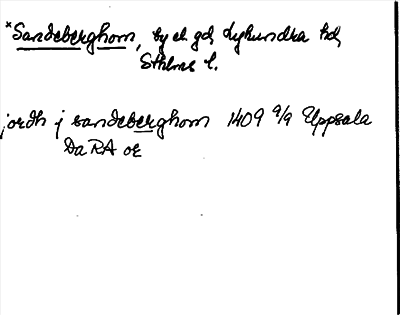 *Sandeberghom, by el. gd, Lyhundra hd,
Sthlms l.
jordh j sandeberghom 1409 9/9 Uppsala
DaRA or